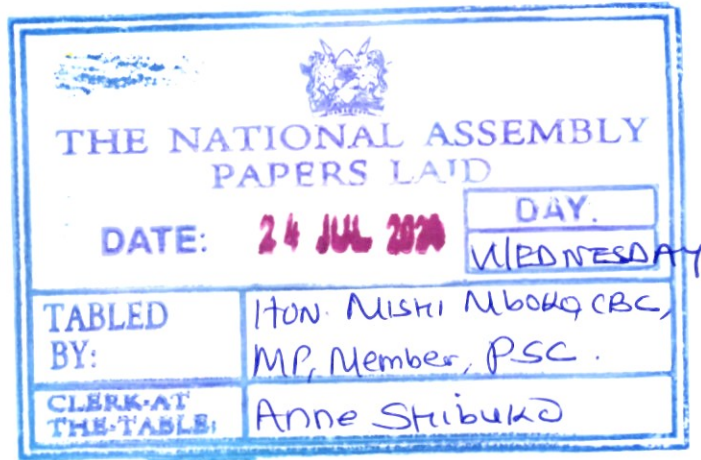 THE NATIONAL ASSEMBLY
PAPERS LAID
DATE: 24 JUL 2024
DAY.
WEDNESDAY
TABLED BY:
HON. MISHI MBOKO, CBC,
MP, Member, PSC.
CLERK-AT THE-TABLE:
Anne Shibuko